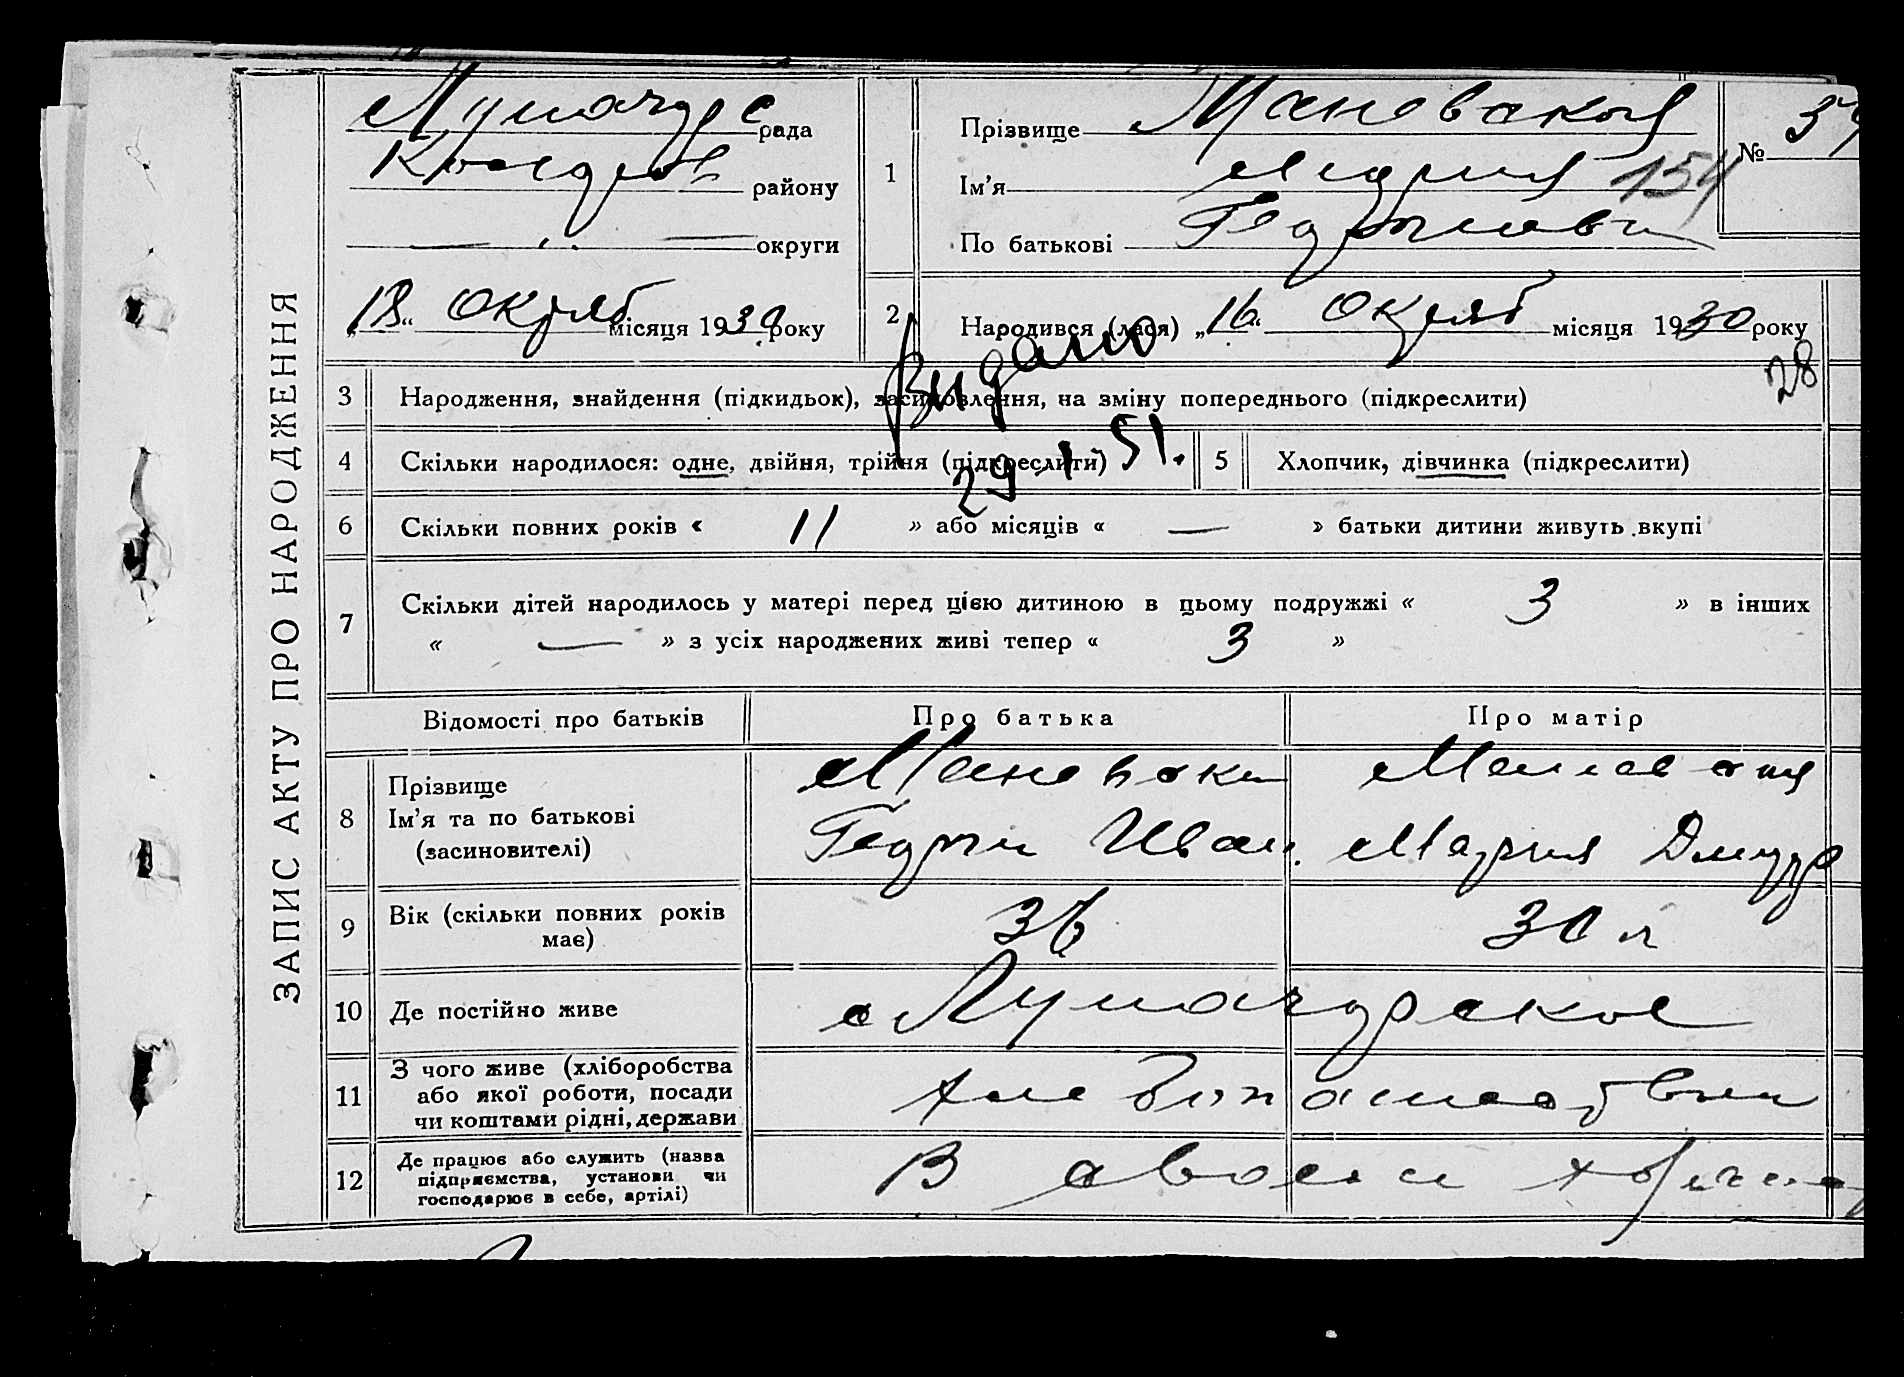 ЗАПИС АКТУ ПРО НАРОДЖЕННЯ
рада
району
округи
„18“ Октяб місяця 1930 року
1
Прізвище Мановская
Ім'я Мария
По батькові
154
№
2
Народився (лася) „16“ Октяб місяця 1930 року
28
Видано
29 1 51.
3 Народження, знайдення (підкидьок), засиновлення, на зміну попереднього (підкреслити)
4 Скільки народилося: одне, двійня, трійня (підкреслити)
5 Хлопчик, дівчинка (підкреслити)
6 Скільки повних років « 11 » або місяців « — » батьки дитини живуть вкупі
7 Скільки дітей народилось у матері перед цією дитиною в цьому подружжі « 3 » в інших
« — » з усіх народжених живі тепер « 3 »
Відомості про батьків Про батька Про матір
8 Прізвище
Ім'я та по батькові
(засиновителі)
Мановски
Иван.
Мановская
Мария
9 Вік (скільки повних років
має)
36
30 л
10 Де постійно живе
11 З чого живе (хліборобства
або якої роботи, посади
чи коштами рідні, держави
12 Де працює або служить (назва
підприємства, установи чи
господарює в себе, артілі)
В своем